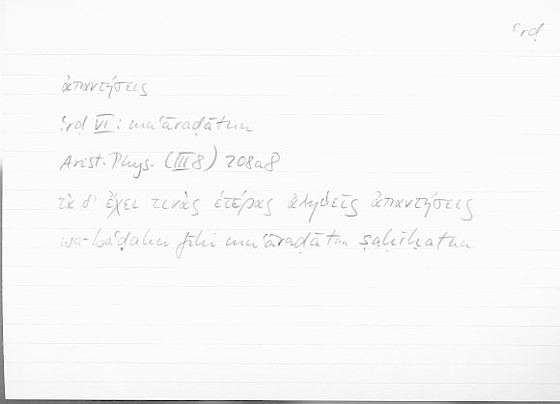 ʿrḍ
ἀπαντήσεις
ʿrḍ VI : muʿāraḍātun
Arist. Phys. (III 8) 208a8
τὰ δ' ἔχει τινὰς ἑτέρας ἀληθεῖς ἀπαντήσεις
wa-baʿḍahu fīhi muʿāraḍātun ṣaḥīḥatun